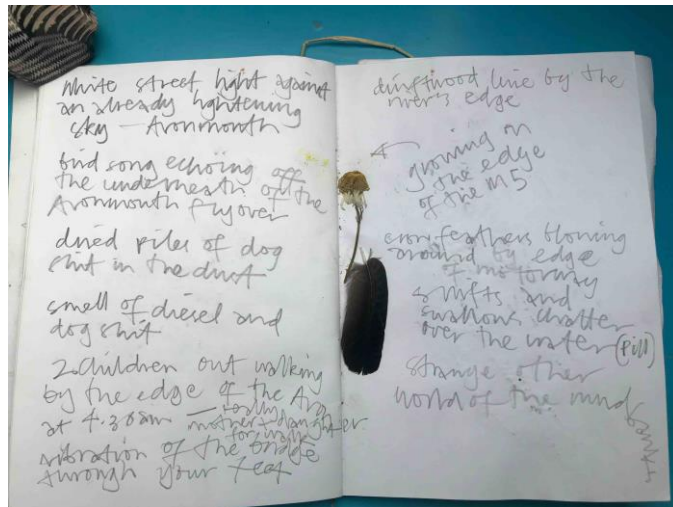 white street light against
an already lightening
sky — Avonmouth
bird song echoing off
the underneath of the
Avonmouth flyover
dried piles of dog
shit in the dust
smell of diesel and
dog shit
2 children out walking
by the edge of the Avon
at 4.30am —
mother + daughter
vibration of the bridge
through your feet
driftwood line by the
river's edge
growing on
the edge
of the M5
crow feathers blowing
around by edge
of motorway
swifts and
swallows chatter
over the water (Pill)
strange other
world of the mud
banks